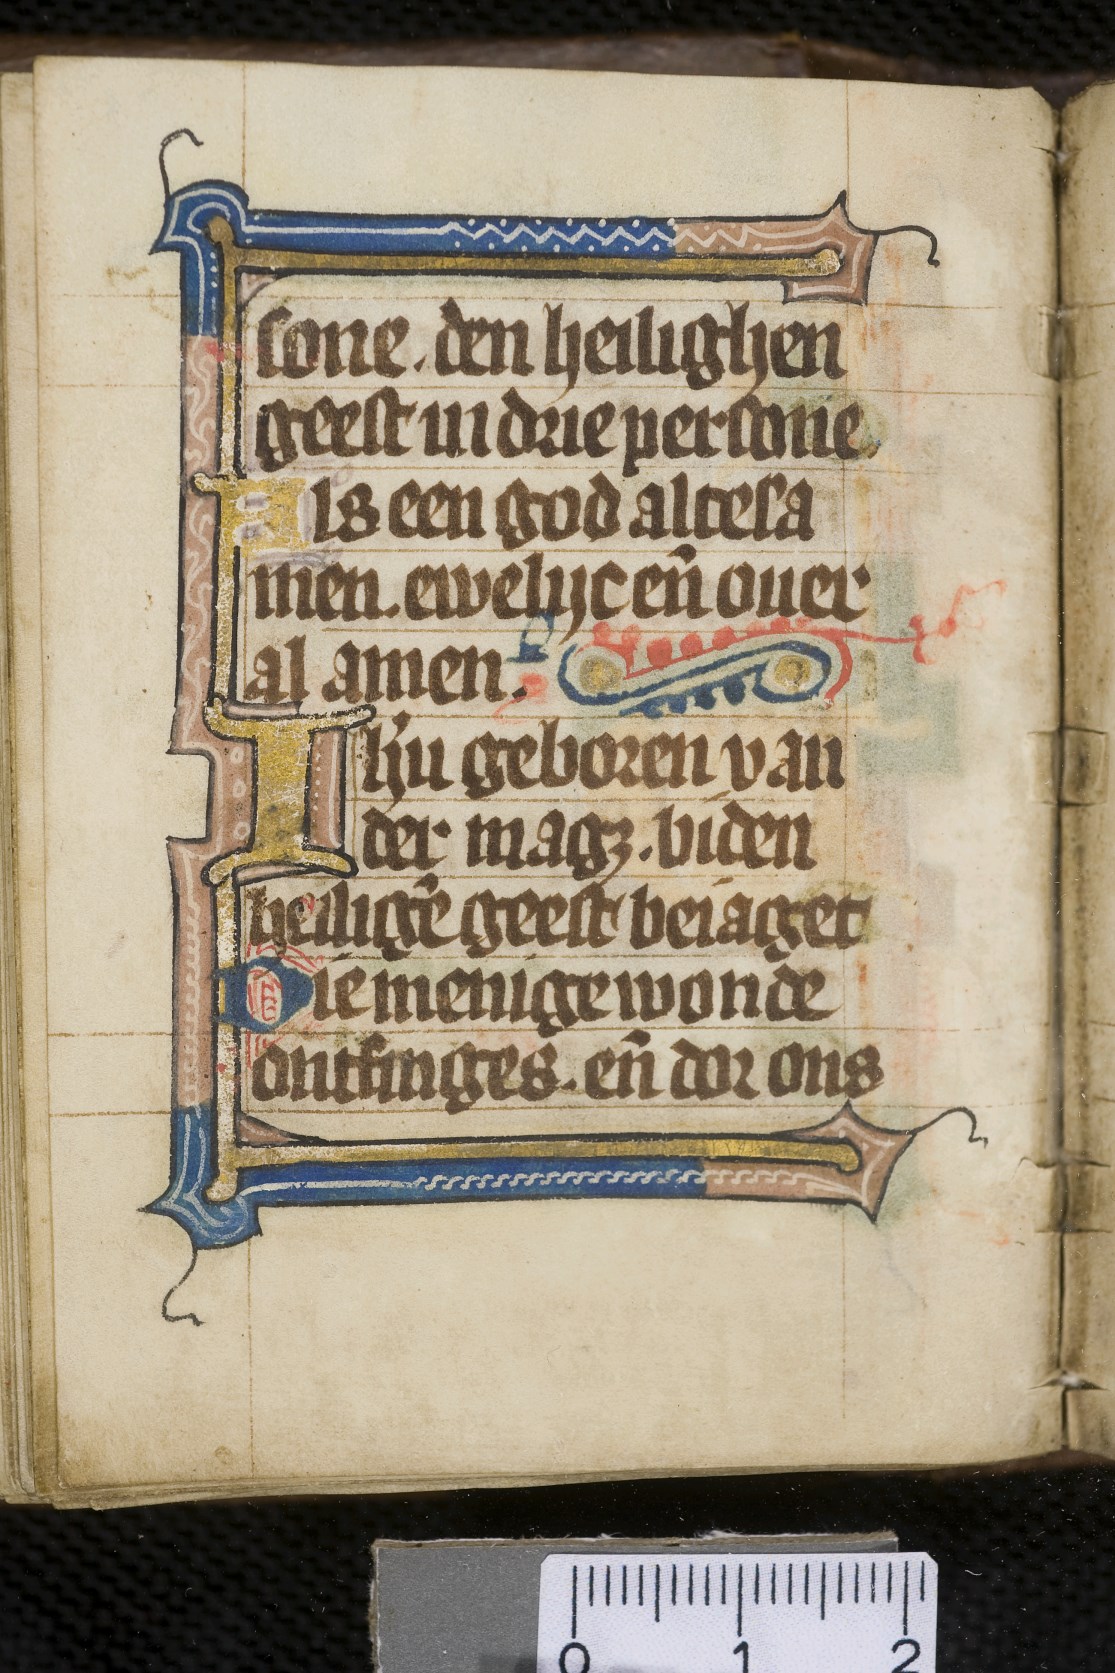 sone. den heilighen
geest in drie persone.
Als een god altesa
men. ewelijc eñ ouer
al amen.
Ihu geboren van
der magꝫ. biden
heiligē geest beiaget
Die menige wonde
ontfinges. eñ dor ons
0 1 2